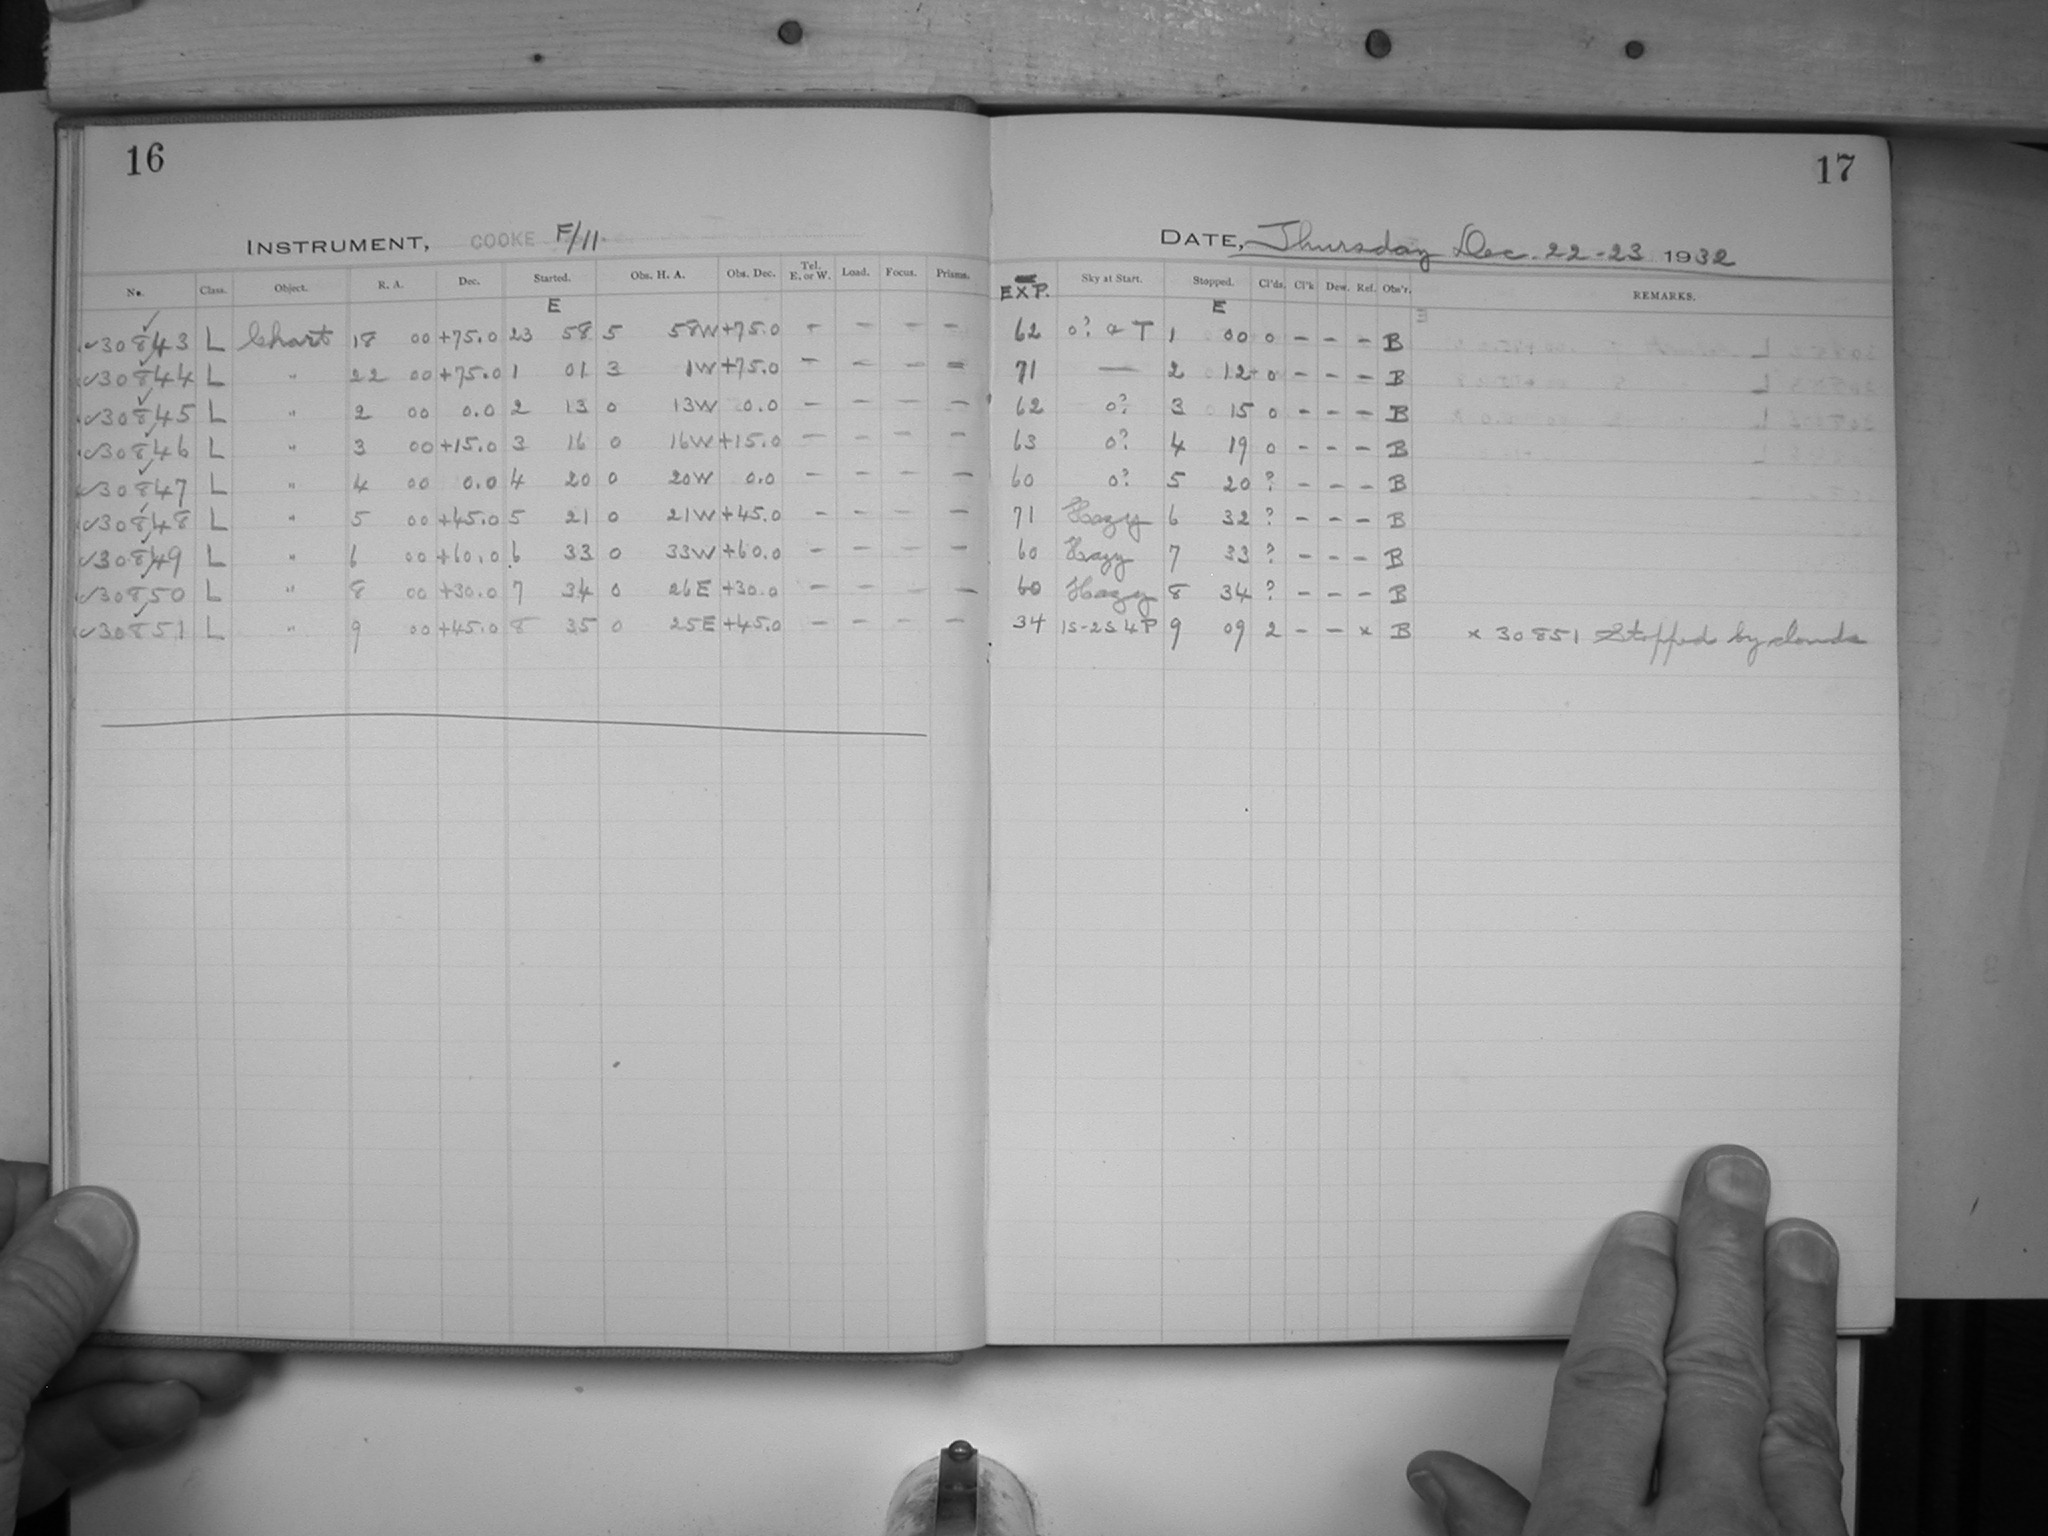 16
INSTRUMENT, COOKE F/11.
No. Class. Object. R. A. Dec. Started. Obs. H. A. Obs. Dec. Tel. E. or W. Load. Focus. Prisms.
E
✓30843 L Chart 18 00 +75.0 23 58 5 58W +75.0 - - - -
✓30844 L " 22 00 +75.0 1 01 3 1W +75.0 - - - -
✓30845 L " 2 00 0.0 2 13 0 13W 0.0 - - - -
✓30846 L " 3 00 +15.0 3 16 0 16W +15.0 - - - -
✓30847 L " 4 00 0.0 4 20 0 20W 0.0 - - - -
✓30848 L " 5 00 +45.0 5 21 0 21W +45.0 - - - -
✓30849 L " 6 00 +60.0 6 33 0 33W +60.0 - - - -
✓30850 L " 8 00 +30.0 7 34 0 26E +30.0 - - - -
✓30851 L " 9 00 +45.0 8 35 0 25E +45.0 - - - -
17
DATE, Thursday Dec. 22-23 1932
EXP. Sky at Start. Stopped. Cl'ds. Cl'k Dew. Ref. Obs'r. REMARKS.
E
62 0? & T 1 00 0 - - - B
71 — 2 12 0 - - - B
62 0? 3 15 0 - - - B
63 0? 4 19 0 - - - B
60 0? 5 20 ? - - - B
71 Hazy 6 32 ? - - - B
60 Hazy 7 33 ? - - - B
60 Hazy 8 34 ? - - - B
34 1S-2S 4P 9 09 2 - - x B x 30851 Stopped by clouds